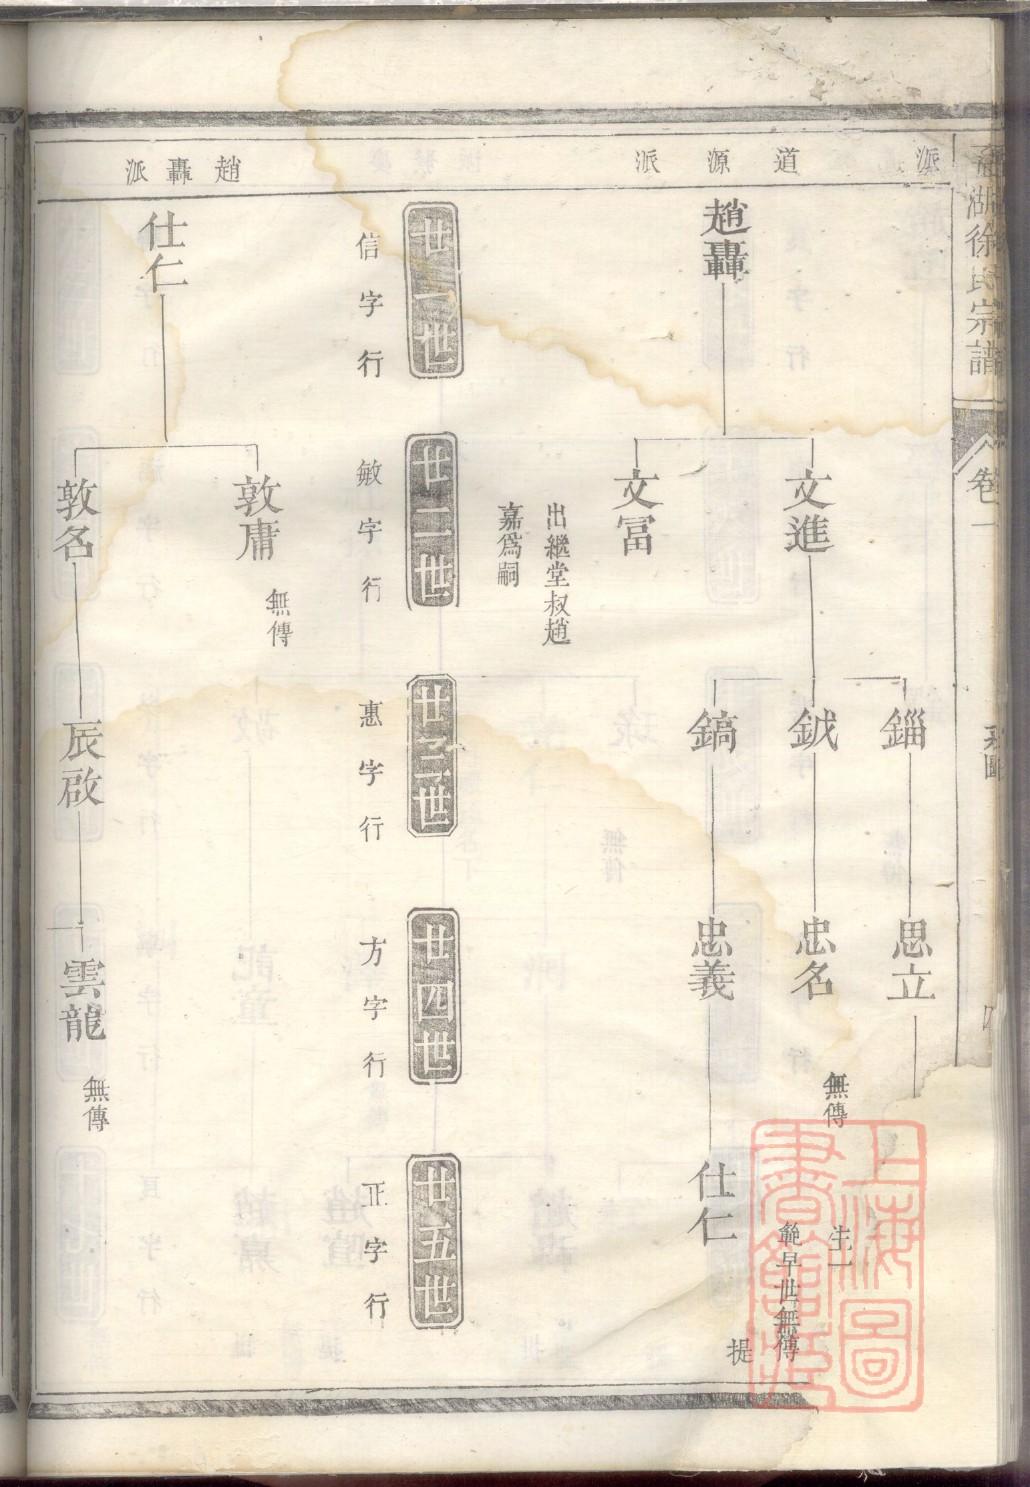 湖徐氏宗譜
卷一
派
道源派
趙轟派
趙轟
文進
文冨
出繼堂叔趙
嘉爲嗣
錙
鉞
鎬
思立
忠名
無傳
忠義
生一
範早世無傳
仕仁
提
廿一世
信字行
廿二世
敏字行
廿三世
惠字行
廿四世
方字行
廿五世
正字行
仕仁
敦庸
無傳
敦名
辰啟
雲龍
無傳
上海圖書館藏